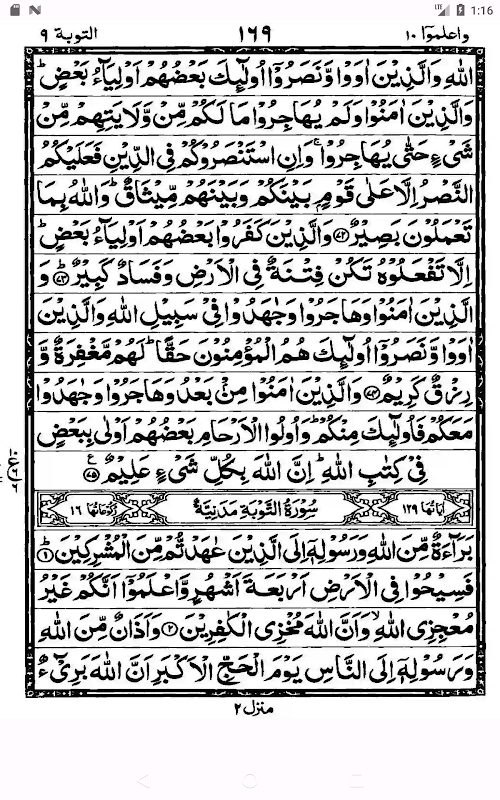 1:16
واعلموٓا ١٠
١٦٩
التوبة ٩
اللّٰهِ وَالَّذِيْنَ اٰوَوْا وَّنَصَرُوْٓا اُولٰٓئِكَ بَعْضُهُمْ اَوْلِيَآءُ بَعْضٍ ؕ
وَالَّذِيْنَ اٰمَنُوْا وَلَمْ يُهَاجِرُوْا مَا لَكُمْ مِّنْ وَّلَايَتِهِمْ مِّنْ
شَىْءٍ حَتّٰى يُهَاجِرُوْا ۚ وَاِنِ اسْتَنْصَرُوْكُمْ فِى الدِّيْنِ فَعَلَيْكُمُ
النَّصْرُ اِلَّا عَلٰى قَوْمٍۭ بَيْنَكُمْ وَبَيْنَهُمْ مِّيْثَاقٌ ؕ وَاللّٰهُ بِمَا
تَعْمَلُوْنَ بَصِيْرٌ ﴿۷۲﴾ وَالَّذِيْنَ كَفَرُوْا بَعْضُهُمْ اَوْلِيَآءُ بَعْضٍ ؕ
اِلَّا تَفْعَلُوْهُ تَكُنْ فِتْنَةٌ فِى الْاَرْضِ وَفَسَادٌ كَبِيْرٌ ﴿۷۳﴾ وَ
الَّذِيْنَ اٰمَنُوْا وَهَاجَرُوْا وَجٰهَدُوْا فِىْ سَبِيْلِ اللّٰهِ وَالَّذِيْنَ
اٰوَوْا وَّنَصَرُوْٓا اُولٰٓئِكَ هُمُ الْمُؤْمِنُوْنَ حَقًّا ؕ لَهُمْ مَّغْفِرَةٌ وَّ
رِزْقٌ كَرِيْمٌ ﴿۷۴﴾ وَالَّذِيْنَ اٰمَنُوْا مِنْۢ بَعْدُ وَهَاجَرُوْا وَجٰهَدُوْا
مَعَكُمْ فَاُولٰٓئِكَ مِنْكُمْ ؕ وَاُولُوا الْاَرْحَامِ بَعْضُهُمْ اَوْلٰى بِبَعْضٍ
فِىْ كِتٰبِ اللّٰهِ ؕ اِنَّ اللّٰهَ بِكُلِّ شَىْءٍ عَلِيْمٌ ﴿۷۵﴾ ع
اٰيَاتُهَا ١٢٩ سُوْرَةُ التَّوْبَةِ مَدَنِيَّةٌ رُكُوْعَاتُهَا ١٦
بَرَآءَةٌ مِّنَ اللّٰهِ وَرَسُوْلِهٖٓ اِلَى الَّذِيْنَ عٰهَدْتُّمْ مِّنَ الْمُشْرِكِيْنَ ﴿۱﴾
فَسِيْحُوْا فِى الْاَرْضِ اَرْبَعَةَ اَشْهُرٍ وَّاعْلَمُوْٓا اَنَّكُمْ غَيْرُ
مُعْجِزِى اللّٰهِ ۙ وَاَنَّ اللّٰهَ مُخْزِى الْكٰفِرِيْنَ ﴿۲﴾ وَاَذَانٌ مِّنَ اللّٰهِ
وَرَسُوْلِهٖٓ اِلَى النَّاسِ يَوْمَ الْحَجِّ الْاَكْبَرِ اَنَّ اللّٰهَ بَرِىْٓءٌ
منزل ٢